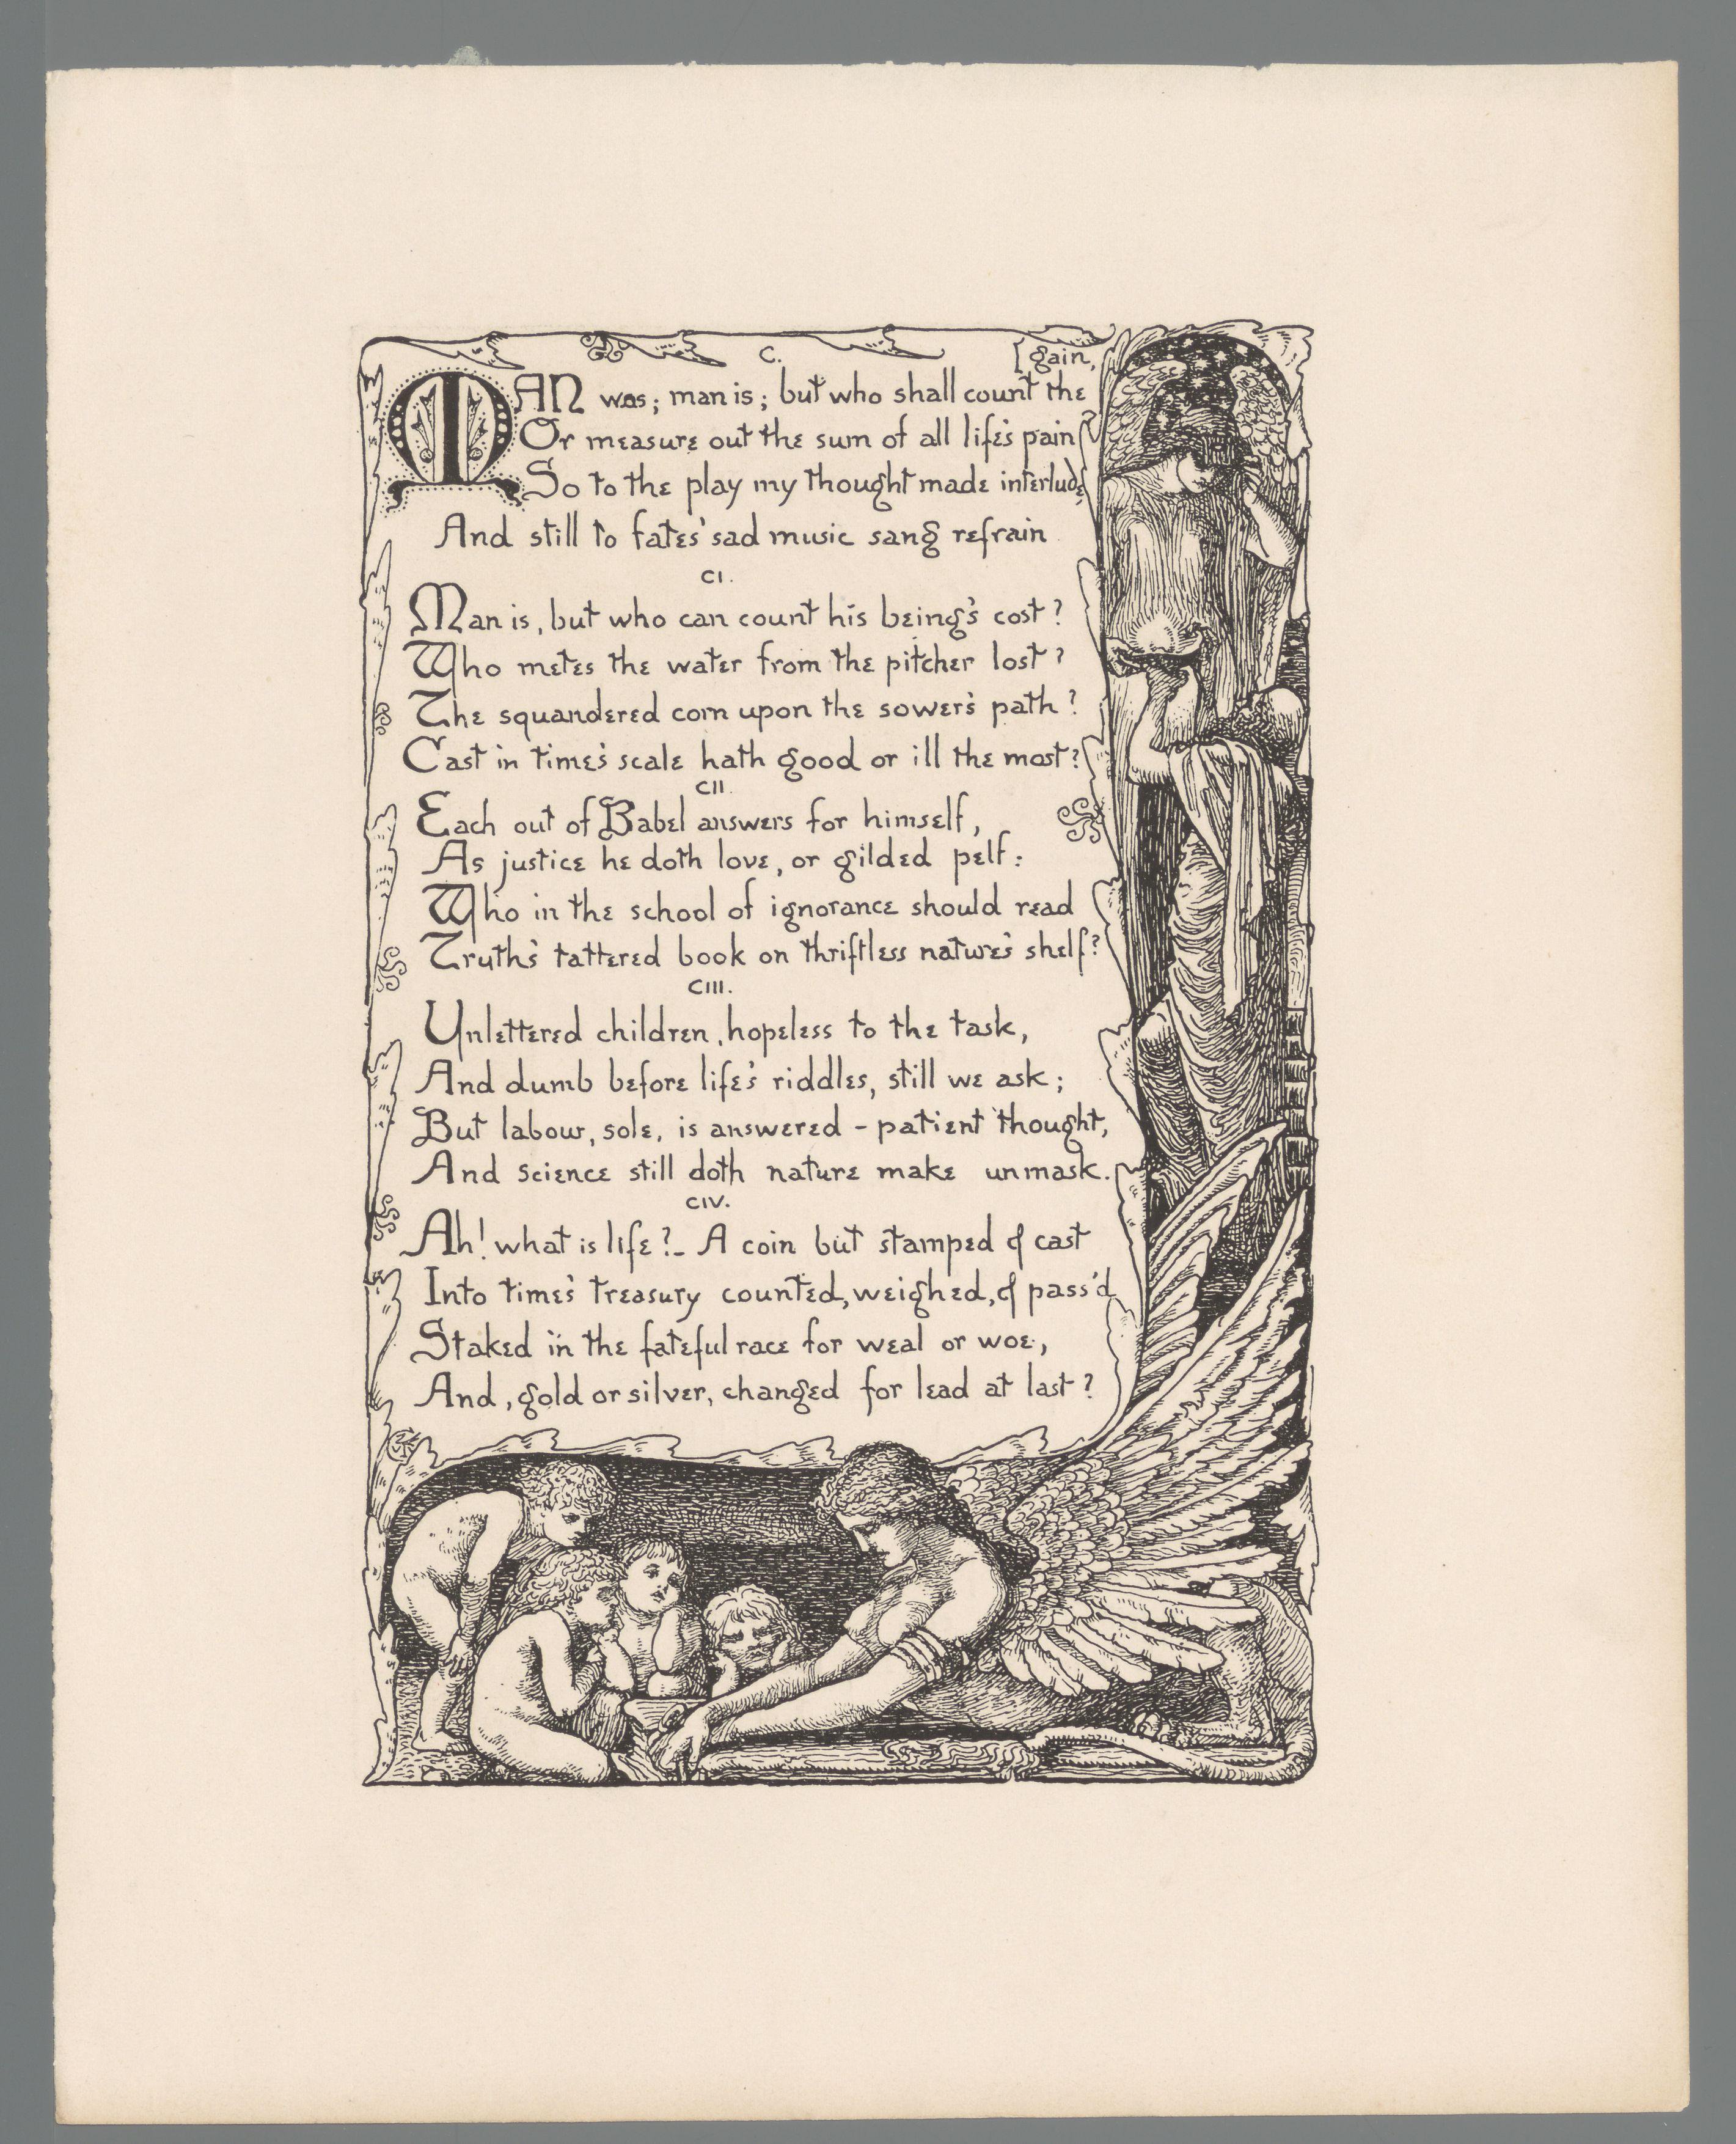 C.
[gain,
MAN was; man is; but who shall count the
Or measure out the sum of all life's pain
So to the play my thought made interlude
And still to fates' sad music sang refrain
CI.
Man is, but who can count his being's cost?
Who metes the water from the pitcher lost?
The squandered corn upon the sower's path?
Cast in time's scale hath good or ill the most?
CII.
Each out of Babel answers for himself,
As justice he doth love, or gilded pelf:
Who in the school of ignorance should read
Truth's tattered book on thriftless nature's shelf?
CIII.
Unlettered children, hopeless to the task,
And dumb before life's riddles, still we ask;
But labour, sole, is answered - patient thought,
And science still doth nature make unmask.
CIV.
Ah! what is life?- A coin but stamped & cast
Into time's treasury counted, weighed, & pass'd
Staked in the fateful race for weal or woe,
And, gold or silver, changed for lead at last?